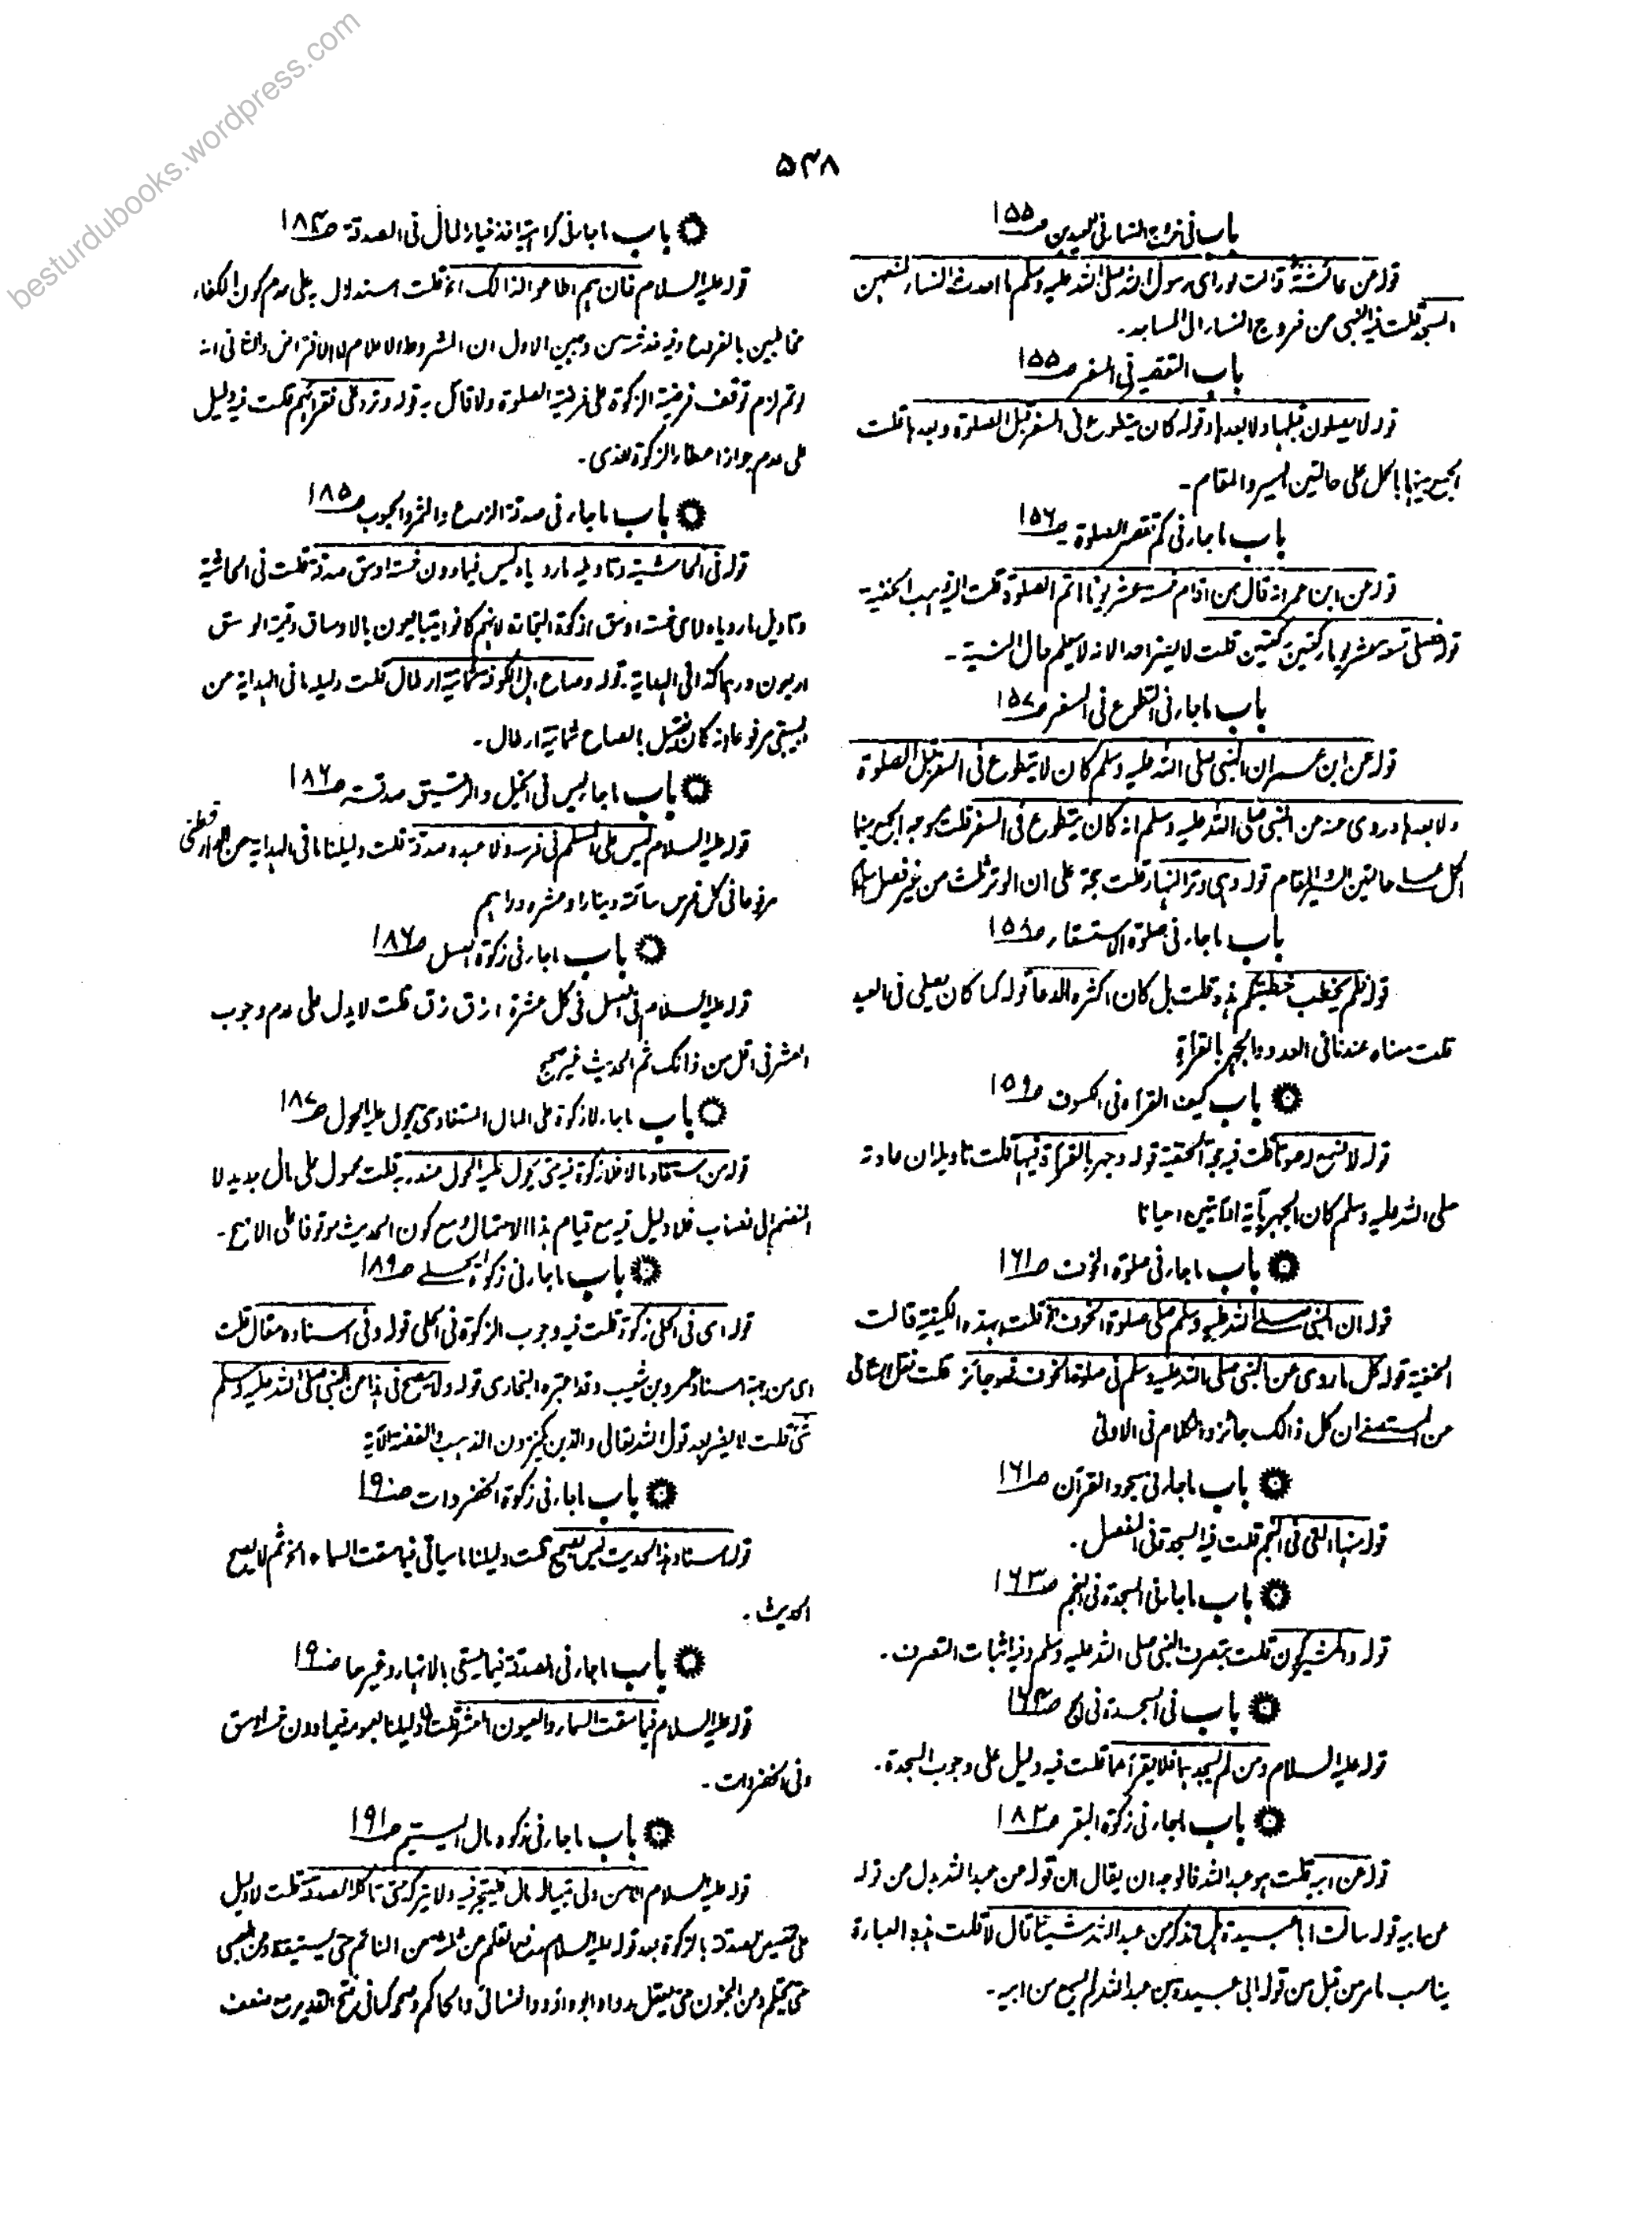 ۵۴۸
باب فی خروج النساء فی العیدین ص۱۵۵
قولہ عن عائشۃ قالت لو رای رسول اللہ صلی اللہ علیہ وسلم ما احدث النساء لمنعھن
المسجد قلت فیہ النہی من خروج النساء الی المساجد۔
باب التقصیر فی السفر ص۱۵۵
قولہ لا یصلون قبلہا ولا بعدہا وقولہ کان یتطوع فی السفر قبل الصلوۃ وبعدہا قلت
الجمع بینہما بالحمل علی حالتین السیر والمقام۔
باب ماجاء فی کم تقصر الصلوۃ ص۱۵۶
قولہ عن ابن عمر انہ قال من اقام خمسۃ عشر یوما اتم الصلوۃ قلت الیہ ذہب الحنفیۃ
قولہ فصلی تسعۃ عشر یوما رکعتین رکعتین قلت لا یضر احدا لانہ لا یعلم حال النیۃ۔
باب ماجاء فی التطوع فی السفر ص۱۵۷
قولہ عن ابن عمر ان النبی صلی اللہ علیہ وسلم کان لا یتطوع فی السفر قبل الصلوۃ
ولا بعدہا وروی عنہ عن النبی صلی اللہ علیہ وسلم انہ کان یتطوع فی السفر قلت وجہ الجمع بینہما
الحمل علی حالتین السیر والمقام قولہ وہی وتر النہار قلت حجۃ علی ان الوتر ثلث من غیر فصل
باب ماجاء فی صلوۃ الاستسقاء ص۱۵۸
قولہ فلم یخطب خطبتکم ہذہ قلت بل کان اکثرہ الدعا قولہ کما کان یصلی فی العید
قلت معناہ عندنا فی العدد والجہر بالقرأۃ
باب کیف القراءۃ فی الکسوف ص۱۵۹
قولہ لا نسمع لہ صوتا قلت فیہ حجۃ الحنفیۃ قولہ وجہر بالقرأۃ فیہا قلت تاویلہ ان عادتہ
صلی اللہ علیہ وسلم کان الجہر بآیۃ او آیتین احیانا
باب ماجاء فی صلوۃ الخوف ص۱۶۱
قولہ ان النبی صلی اللہ علیہ وسلم صلی صلوۃ الخوف الخ قلت بہذہ الکیفیۃ قالت
الحنفیۃ قولہ کل ما روی عن النبی صلی اللہ علیہ وسلم فی صلوۃ الخوف فہو جائز قلت نقل الشامی
من المستصفے ان کل ذالک جائز والکلام فی الاولی
باب ماجاء فی سجود القرآن ص۱۶۱
قولہ منہا التی فی النجم قلت فیہ السجدۃ فی المفصل۔
باب ماجاء فی السجدۃ فی النجم ص۱۶۳
قولہ والمشرکون قلت بتصرف النبی صلی اللہ علیہ وسلم وفیہ اثبات التصرف۔
باب فی السجدۃ فی الحج ص۱۶۴
قولہ علیہ السلام ومن لم یسجد بہا فلا یقرأہما قلت فیہ دلیل علی وجوب السجدۃ۔
باب ماجاء فی زکوۃ البقر ص۱۸۳
قولہ عن ابیہ قلت ہو عبد اللہ فالوجہ ان یقال ان قولہ من عبد اللہ بدل من قولہ
عن ابیہ قولہ سالت ابا عبیدۃ ہل تذکر من عبد اللہ شیئا قال لا قلت ہذہ العبارۃ
یناسب ما مر من قبل من قولہ ابی عبیدۃ بن عبد اللہ لم یسمع من ابیہ۔
باب ماجاء فی کراہیۃ اخذ خیار المال فی الصدقۃ ص۱۸۴
قولہ علیہ السلام فان ہم اطاعوا لذالک الخ قلت استدلال بہ علی عدم کون الکفار
مخاطبین بالفروع وفیہ خدشۃ من وجہین الاول ان المشروط الاعلام لا الافتراض والثانی انہ
لو تم لزم توقف فرضیۃ الزکوۃ علی فرضیۃ الصلوۃ ولا قائل بہ قولہ وترد علی فقرائہم قلت فیہ دلیل
علی عدم جواز اعطاء الزکوۃ للذمی۔
باب ماجاء فی صدقۃ الزرع والثمر والحبوب ص۱۸۵
قولہ فی الحاشیۃ وتاویلہ ما رویاہ لیس فیما دون خمسۃ اوسق صدقۃ قلت فی الحاشیۃ
وتاویل ما رویاہ لای خمسۃ اوسق زکوۃ التجارۃ لانہم کانوا یتبایعون بالاوساق وقیمۃ الوسق
اربعون درہما کذا فی الہدایۃ۔ قولہ وصاع اہل الکوفۃ ثمانیۃ ارطال قلت دلیلہ ما فی الہدایۃ من
البیہقی مرفوعا انہ کان یغتسل بالصاع ثمانیۃ ارطال۔
باب ماجاء لیس فی الخیل والرقیق صدقۃ ص۱۸۶
قولہ علیہ السلام لیس علی المسلم فی فرسہ ولا عبدہ صدقۃ قلت دلیلنا ما فی الہدایۃ من الدارقطنی
مرفوعا فی کل فرس سائمۃ دینار او عشرہ دراہم
باب ماجاء فی زکوۃ العسل ص۱۸۶
قولہ علیہ السلام فی العسل فی کل عشرۃ ازق زق قلت لا یدل علی عدم وجوب
العشر فی اقل من ذالک ثم الحدیث غیر صحیح
باب ماجاء لا زکوۃ علی المال المستفاد حتی یحول علیہ الحول ص۱۸۷
قولہ من استفاد مالا فلا زکوۃ فیہ حتی یحول علیہ الحول عند ربہ قلت محمول علی مال جدید لا
المنضم الی نصاب فلا دلیل فیہ مع قیام ہذا الاحتمال مع کون الحدیث موقوفا علی الاصح۔
باب ماجاء فی زکوۃ الحلی ص۱۸۹
قولہ ای فی الحلی زکوۃ قلت فیہ وجوب الزکوۃ فی الحلی قولہ وفی اسنادہ مقال قلت
ای من جہۃ اسناد عمرو بن شعیب وقد اعتبرہ البخاری قولہ ولا یصح فی ہذا من النبی صلی اللہ علیہ وسلم
شئ قلت لا یضر بعد قول اللہ تعالی والذین یکنزون الذہب والفضۃ الآیۃ
باب ماجاء فی زکوۃ الخضروات ص۱۹۰
قولہ اسناد ہذا الحدیث لیس بصحیح قلت دلیلنا ما سیاتی فیما سقت السماء الخ ثم لا یصح
الحدیث۔
باب ماجاء فی الصدقۃ فیما یسقی بالانہار وغیرہا ص۱۹۰
قولہ علیہ السلام فیما سقت السماء والعیون العشر قلت دلیلنا بعمومہ فیما دون خمسۃ اوسق
وفی الخضروات۔
باب ماجاء فی زکوۃ مال الیتیم ص۱۹۱
قولہ علیہ السلام الا من ولی یتیما لہ مال فلیتجر فیہ ولا یترکہ حتی تاکلہ الصدقۃ قلت لا دلیل
علی تخصیص الصدقۃ بالزکوۃ بعد قولہ علیہ السلام رفع القلم عن ثلثۃ عن النائم حتی یستیقظ وعن الصبی
حتی یحتلم وعن المجنون حتی یعقل رواہ ابو داؤد والنسائی والحاکم وصححہ کما فی فتح القدیر مع ضعف
besturdubooks.wordpress.com